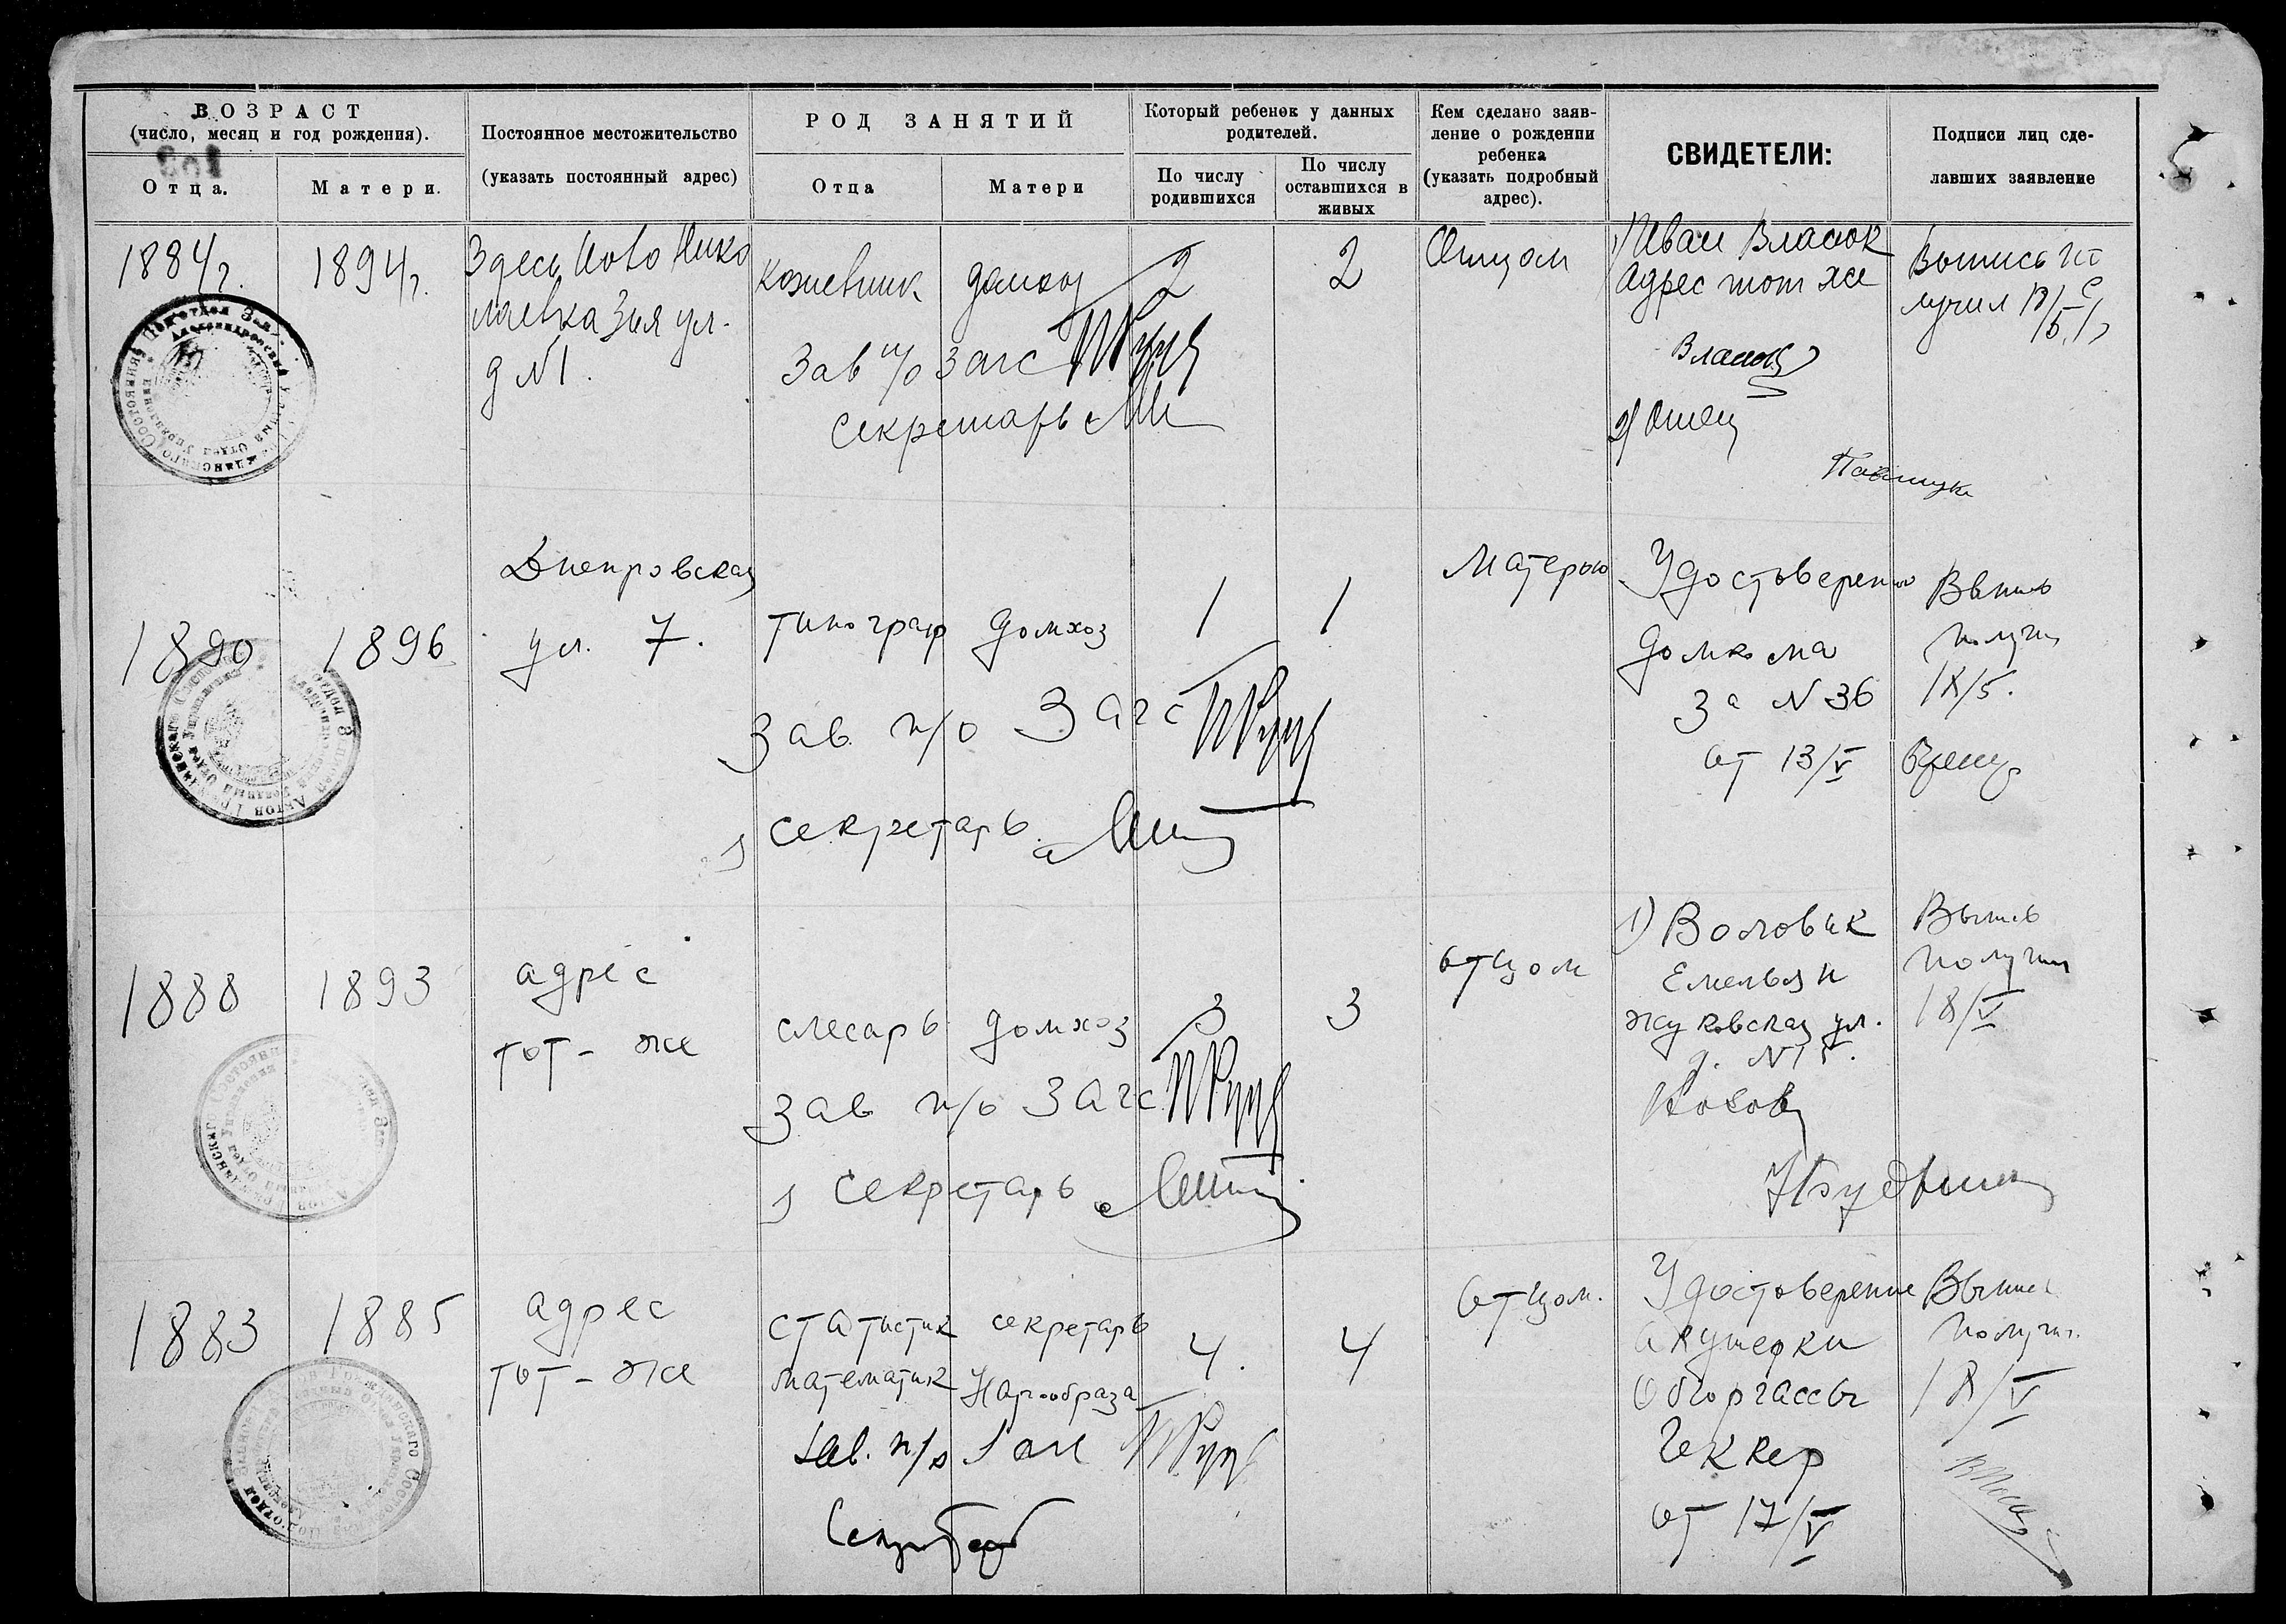 ВОЗРАСТ
(число, месяц и год рождения).
Отца.
Матери.
Постоянное местожительство
(указать постоянный адрес)
РОД ЗАНЯТИЙ
Отца
Матери
Который ребенок у данных
родителей.
По числу
родившихся
По числу
оставшихся в
живых
Кем сделано заяв-
ление о рождении
ребенка
(указать подробный
адрес).
СВИДЕТЕЛИ:
Подписи лиц сде-
лавших заявление
1884 г.
1894 г.
Здесь Ново Нико
лаевка 3ья ул.
д N 1.
кожевник
домхоз
2
2
Отцом
1) Иван Власюк
Адрес тот же
Власюк
2) Отец
Выпись по
лучил 18/5
Зав п/о Загс
секретарь
1890
1896
Днепровская
ул. 7.
типограф
домхоз
1
1
Матерью
Удостоверение
домкома
за N 36
от 13/V
Выпись
получил
18/5.
Зав. п/о Загс
секретарь
1888
1893
адрес
тот-же
слесарь
домхоз
3
3
отцом
1) Воловик
Емельян
Жуковская ул.
Выпись
получил
18/V
Зав п/о Загс
секретарь
1883
1885
адрес
тот-же
статистик
математик
секретарь
Наробраза
4.
4
отцом.
Удостоверение
акушерки
Геккер
от 17/V
Выпись
получил
18/V
Зав. п/о Загс